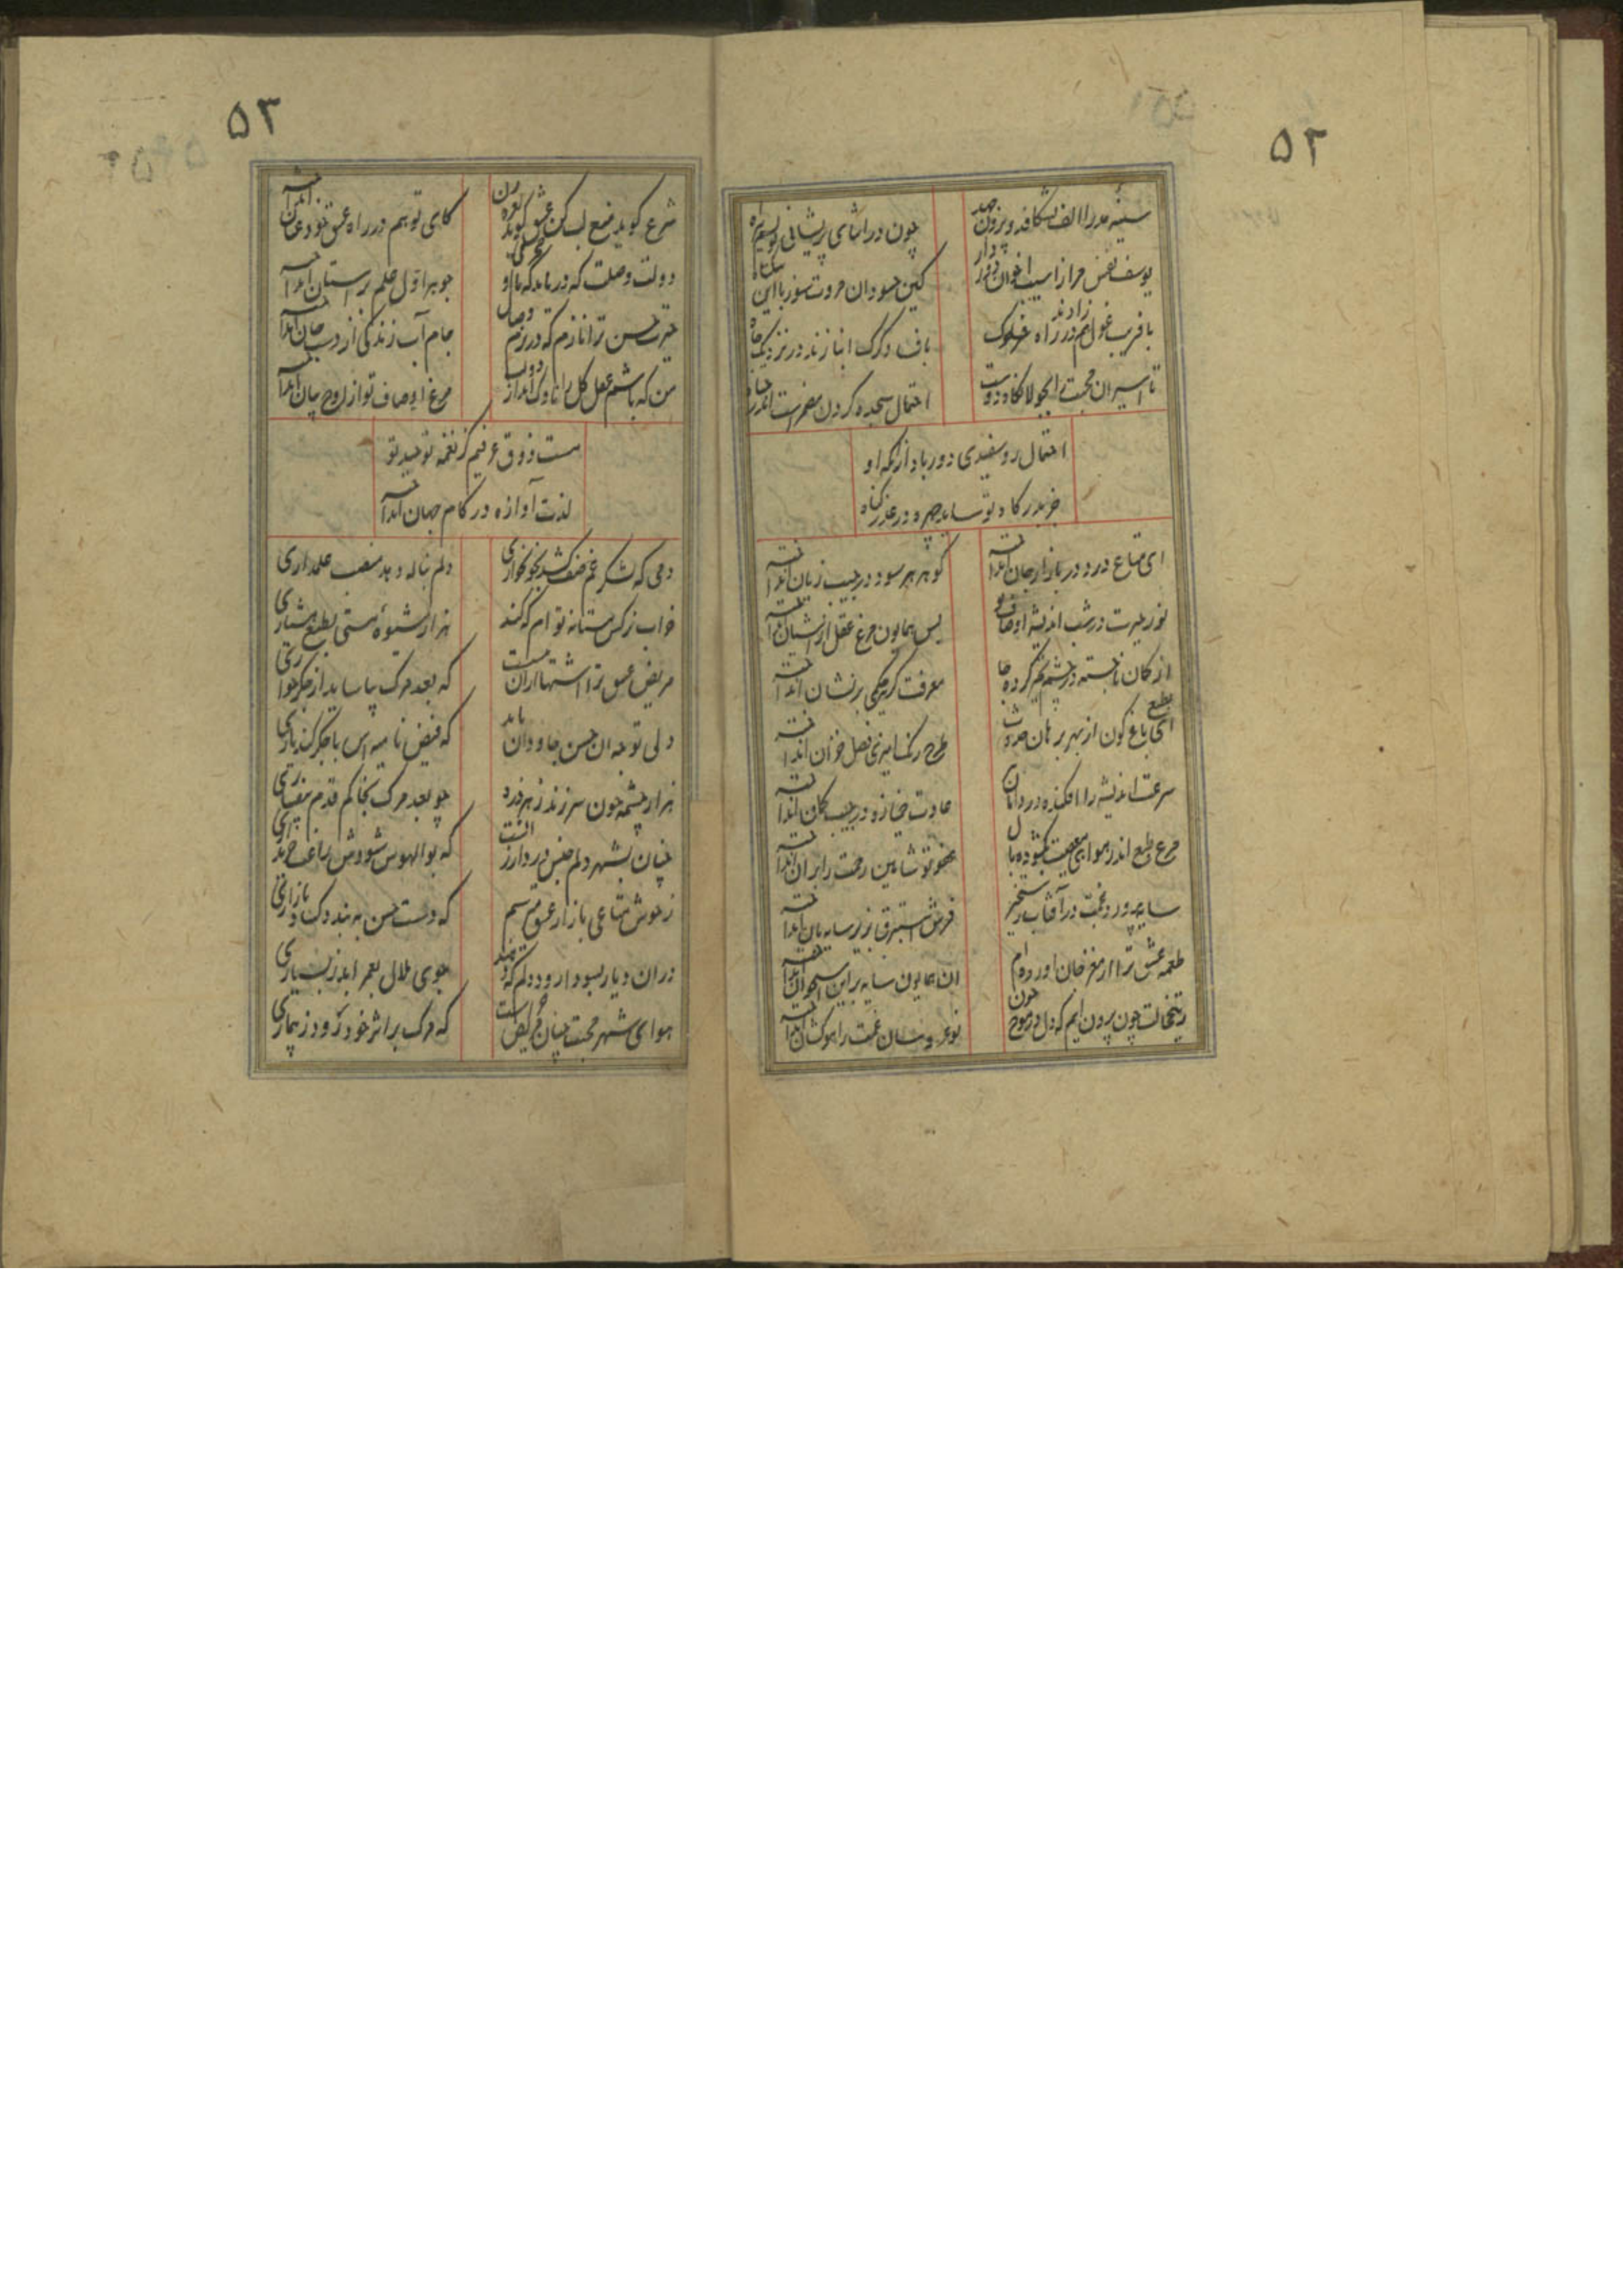 ۵۲
سینهٔ مدر الف بشکافد و بیرون جهد چون در اثنای پریشانی
یوسف نفس مرا ز آسیب اخوان دور دار کین حسودان مروت سوز با این بیگناه
با فریب غول همزادند در راه سلوک باف و گرگ انبازند در نزدیک چاه
تا اسیران محبت را بجولانگاه دوست احتمال سجده کردن مضمرست اندر جباه
احتمال روسفیدی دور باد از آنکه او
جز بدرگاه تو ساید چهره در عذر گناه
ای متاع درد در بازار جان انداخته گوهر هر سود در جیب زیان انداخته
نور حیرت در شب اندیشه اوصاف تو بس همایون مرغ عقل از آشیان انداخته
از کمان ناجسته در چشم کرده جا معرفت بر نشان انداخته
ای بطبع باغ کون از بهر برهان حدوث طرح رنگ آمیزی فصل خزان انداخته
سرعت اندیشه را افکنده در دامان عادت خمیازه در جیب کمان انداخته
مرغ طبع اندر هوای معصیت بگشوده بال عفو تو شاهین رحمت را بر ان انداخته
سایه پرورد غمت در آفتاب رستخیز فرش استبرق بزیر سایه بان انداخته
طعمه عشق ترا از مغز جان اورده ام ان همایون سایه بر این استخوان انداخته
خجالت چون برون ایم که دل در موج خون نوعروسان غمت را موکشان انداخته
۵۳
شرع کوید منع لب کن عشق کوید نعره زن کای تو هم در راه عشق خود عنان انداخته
دولت وصلت که دریابد که با او محرمی جوهر اول علم بر آستان انداخته
حیرت حسن ترا نازم که در بزم وصال جام آب زندگی از دست جان انداخته
من که باشم عقل کل را ناوک انداز ادب مرغ اوصاف تو از اوج بیان انداخته
مست ذوق عرفیم کز نغمه توحید تو
لذت آوازه در کام جهان انداخته
دمی که لشکر غم صف کشد بخونخواری دلم بناله دهد منصب علمداری
خراب نرکس مستانه توام که کند هزار شیوه مستی بطبع هشیاری
مریض عشق ترا اشتهای ازان مست که بعد مرک بیاساید از جگرخواری
ولی توجه ان حسن جاودان باید که فیض نامیه اش با جگر کند یاری
هزار چشمه خون سر زند ز هر ذره چو بعد مرک بخاکم قدم بیفشاری
چنان بشهر دلم جنس درد ارزانست که بوالهوس شودش راغب خریداری
ز خوش متاعی بازار عشق میترسم که دست حسن ببندد کساد بازاری
دران دیار بسودا رود دلم که دهند جوی ملال بعمر ابد ز بسیاری
هوای شهر محبت چنان مرض است که مرک بر اثر خود رود ز بیماری